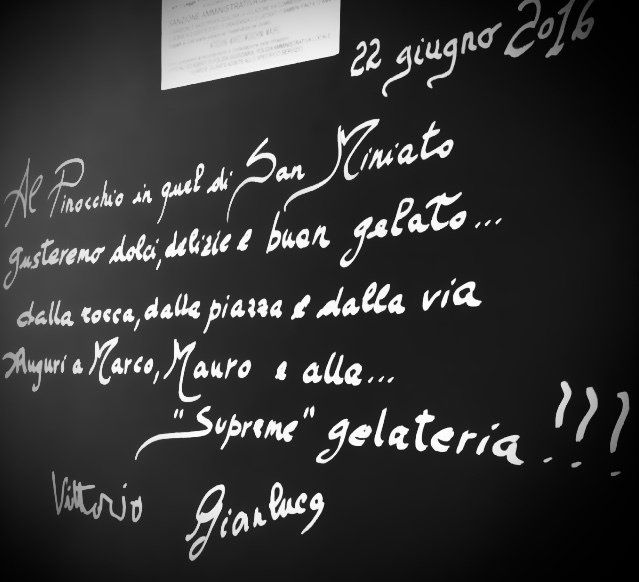 SANZIONE AMMINISTRATIVA
22 giugno 2016
Al Pinocchio in quel di San Miniato
gusteremo dolci, delizie e buon gelato...
dalla rocca, dalla piazza e dalla via
Auguri a Marco, Mauro e alla...
"Supreme" gelateria!!!
Vittorio Gianluca